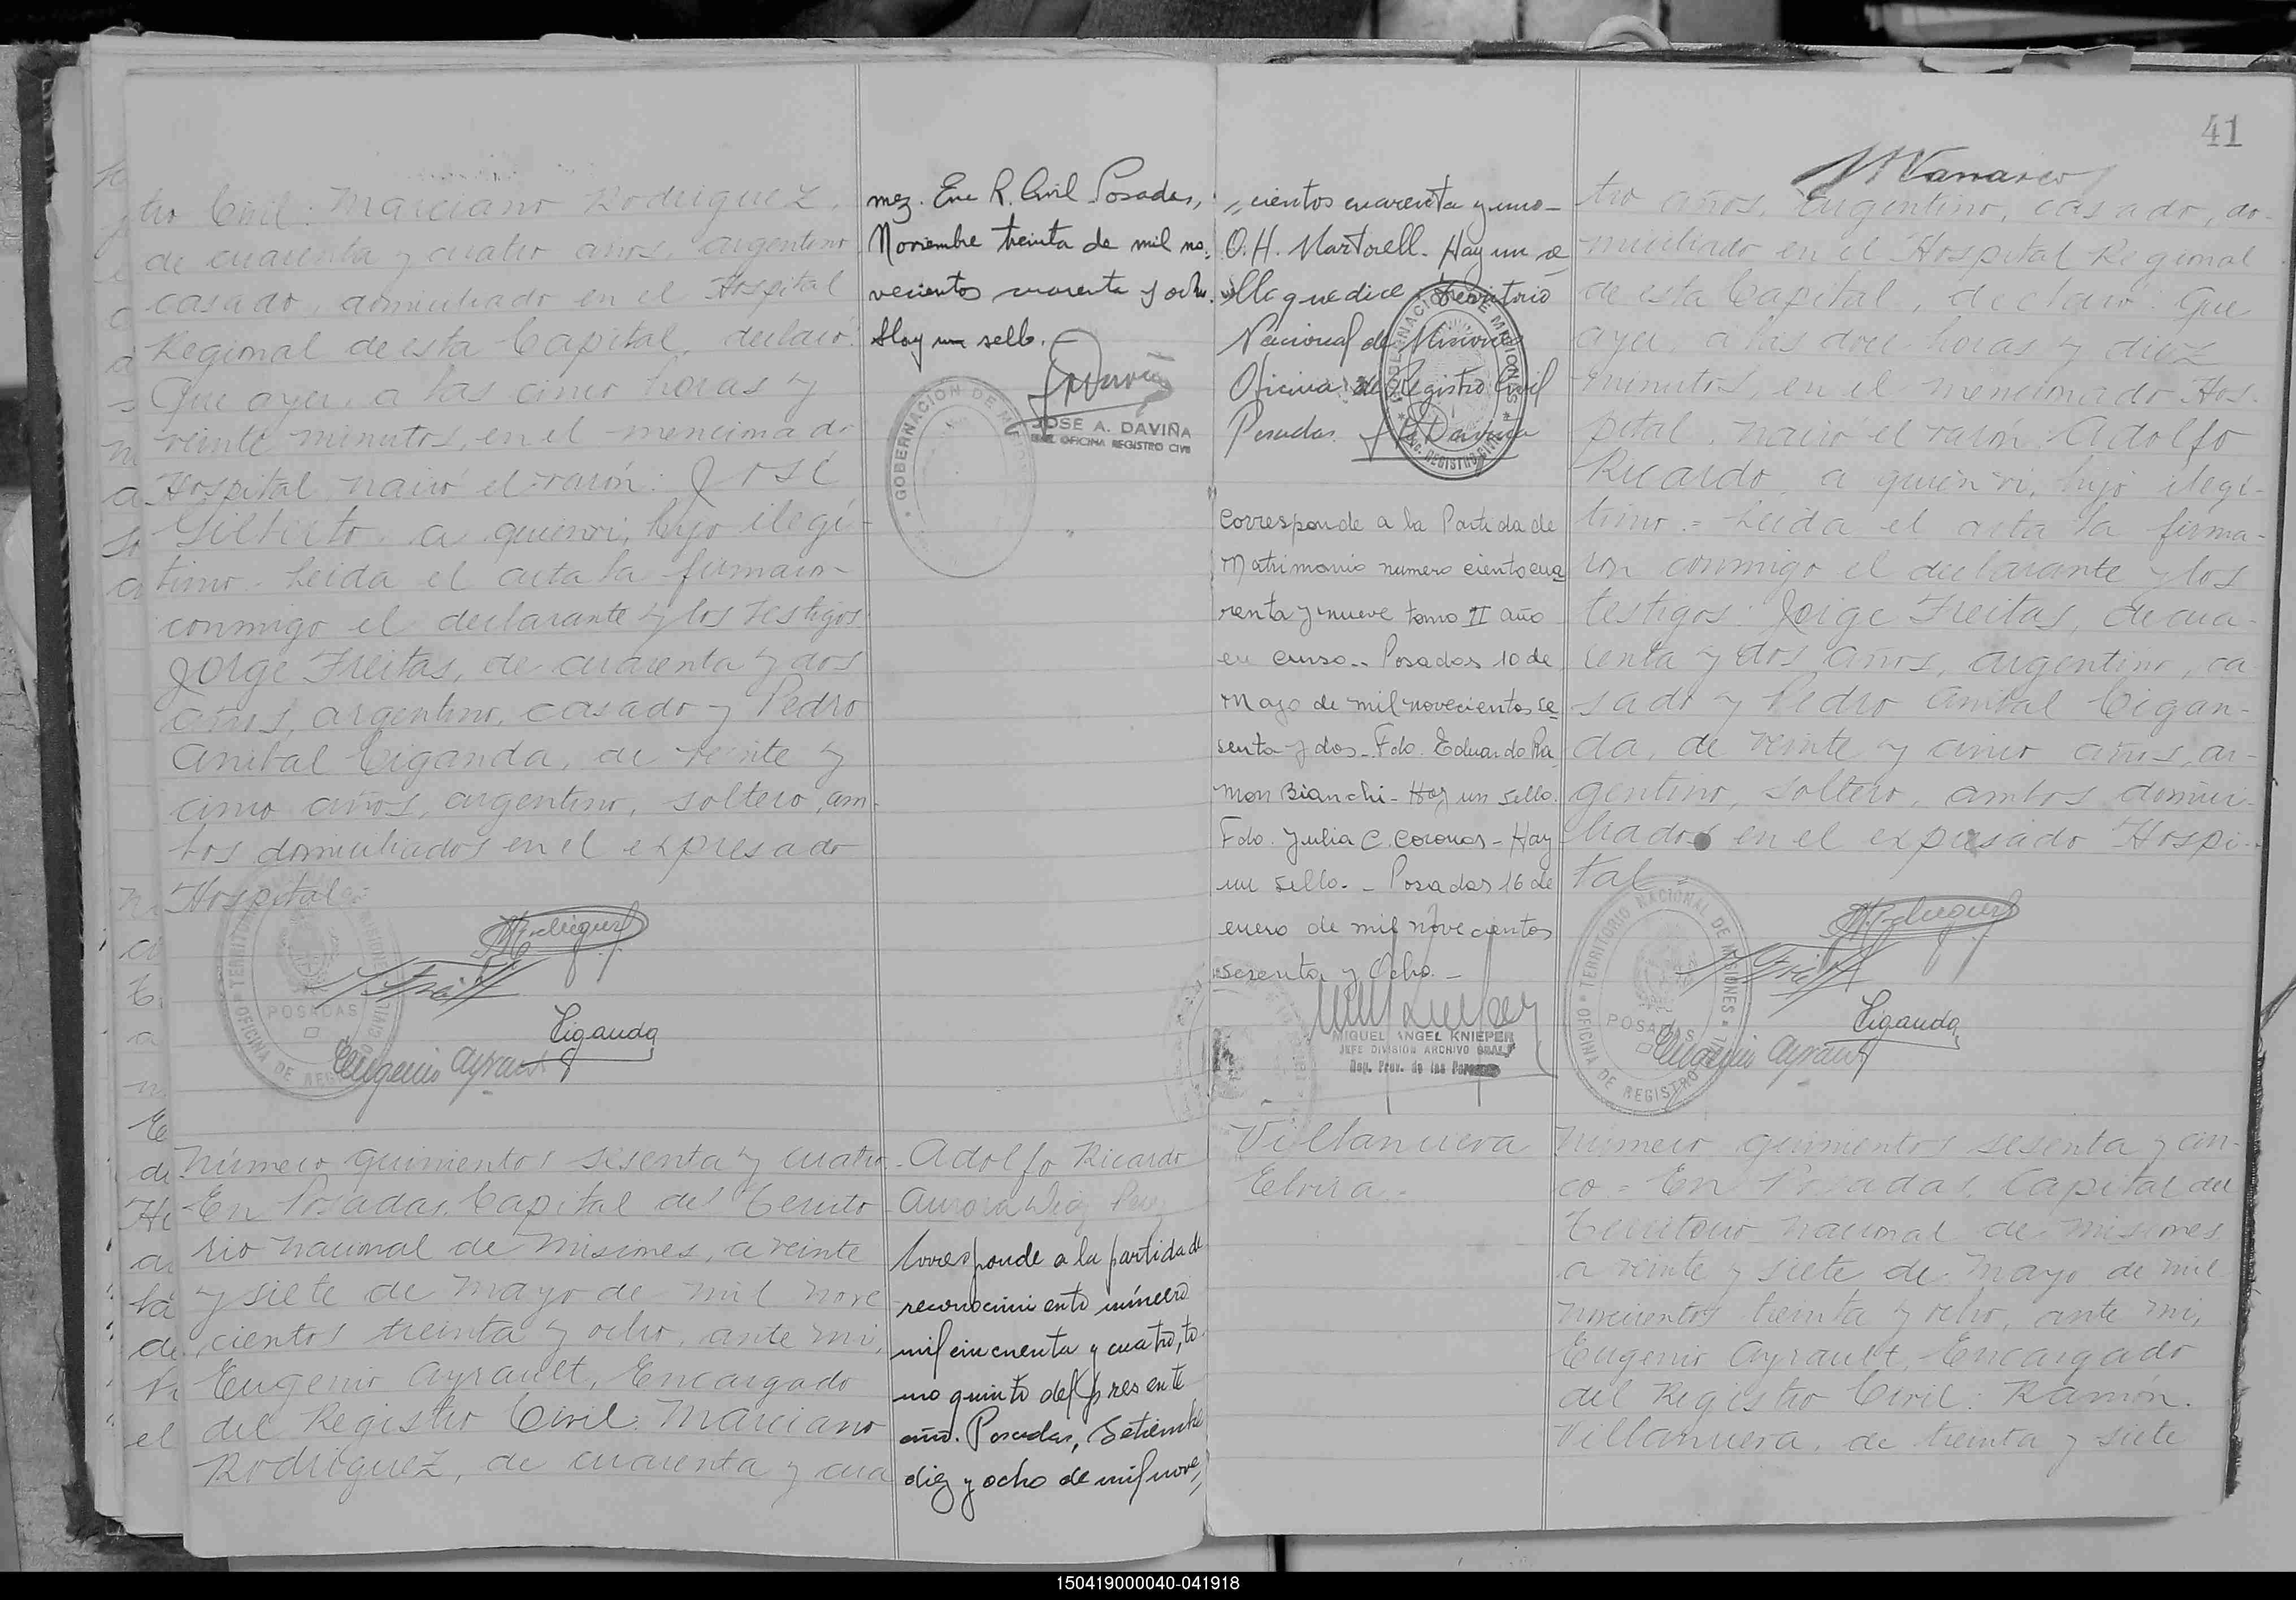 tro Civil: Marciano Rodriguez,
de cuarenta y cuatro años, argentino
casado, domiciliado en el Hospital
Regional de esta Capital, declaró:
Que ayer, a las cinco horas y
veinte minutos, en el mencionado
Hospital nació el varón: José
Gilberto, a quien vi, hijo ilegi-
timo.- Leida el acta la firmaron
conmigo el declarante y los testigos:
Jorge Freitas, de cuarenta y dos
años, argentino, casado y Pedro
Anibal Ciganda, de veinte y
cinco años, argentino, soltero, am-
bos domiciliados en el expresado
Hospital.=
TERRITORIO
MISIONES
POSADAS
OFICINA DE REGISTRO CIVIL
Ciganda
Eugenio Ayrault
Número quinientos sesenta y cuatro
En Posadas, Capital del Territo-
rio Nacional de Misiones, a veinte
y siete de Mayo de mil nove
cientos treinta y ocho, ante mi,
Eugenio Ayrault, Encargado
del Registro Civil: Marciano
Rodriguez, de cuarenta y cua
mez. Enc R. Civil Posadas,
Noviembre treinta de mil no-
vecientos cuarenta y ocho.
Hay un sello.
JOSE A. DAVIÑA
OFICINA REGISTRO CIVIL
GOBERNACIÓN DE
Adolfo Ricardo
Aurora
Corresponde a la partida de
reconocimiento número
mil cincuenta y cuatro, to-
mo quinto del presente
año. Posadas, Setiembre
diez y ocho de mil nove„
„cientos cuarenta y uno-
O.H. Martorell. Hay un se
llo que dice: Territorio
Nacional de Misiones
Oficina de Registro Civil
Posadas.
DE MISIONES
REGISTRO CIVIL
Corresponde a la Partida de
Matrimonio numero ciento cua
renta y nueve tomo II año
en curso.- Posadas 10 de
Mayo de mil novecientos se
senta y dos - Fdo. Eduardo Ra
mon Bianchi - Hay un sello.
Fdo. Julia C. Coronas - Hay
un sello. - Posadas 16 de
enero de mil novecientos
sesenta y Ocho. -
MIGUEL ANGEL KNIEPER
JEFE DIVISION ARCHIVO GRAL
Dep. Prov. de las Personas
Villanueva
Elvira.-
41
tro años, argentino, casado, do-
miciliado en el Hospital Regional
de esta Capital, declaró: Que
ayer, a las doce horas y diez
minutos, en el mencionado Hos-
pital, nació el varón: Adolfo
Ricardo, a quien vi, hijo ilegi-
timo.= Leida el acta la firma-
ron conmigo el declarante y los
testigos: Jorge Freitas, de cua-
renta y dos años, argentino, ca-
sado y Pedro Anibal Cigan-
da, de veinte y cinco años, ar-
gentino, soltero, ambos domici-
liados en el expresado Hospi-
tal=
TERRITORIO NACIONAL DE MISIONES
POSADAS
OFICINA DE REGISTRO
Ciganda
Eugenio Ayrault
Número quinientos sesenta y cin-
co= En Posadas, Capital del
Territorio Nacional de Misiones
a veinte y siete de Mayo de mil
novecientos treinta y ocho, ante mi,
Eugenio Ayrault, Encargado
del Registro Civil: Ramón
Villanueva, de treinta y siete
150419000040-041918